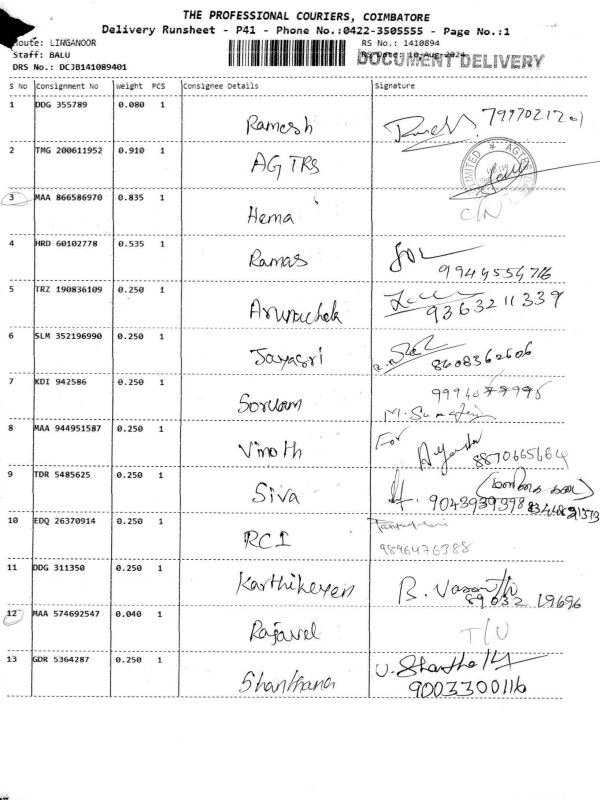 THE PROFESSIONAL COURIERS, COIMBATORE
Delivery Runsheet - P41 - Phone No.:0422-3505555 - Page No.:1
Route: LINGANOOR
RS No.: 1410894
Staff: BALU
RS Date: 10-Aug-2024
DOCUMENT DELIVERY
DRS No.: DCJB141089401
S No Consignment No Weight PCS Consignee Details Signature
1 DDG 355789 0.080 1 Ramesh 7997021201
2 TMG 200611952 0.910 1 AG TRS
3 MAA 866586970 0.835 1 Hema C/N
4 HRD 60102778 0.535 1 Ramas 9944554716
5 TRZ 190836109 0.250 1 Arunachek 9363211339
6 SLM 352196990 0.250 1 Jayasri 8608362606
7 KDI 942586 0.250 1 Soruam
8 MAA 944951587 0.250 1 Vinoth For 8870665664
9 TDR 5485625 0.250 1 Siva 9043939398
10 EDQ 26370914 0.250 1 RCI 9896476388
11 DDG 311350 0.250 1 Karthikeyen B. Vasanth 89032 19696
12 MAA 574692547 0.040 1 Rajavel T/U
13 GDR 5364287 0.250 1 Shanthana 9003300116